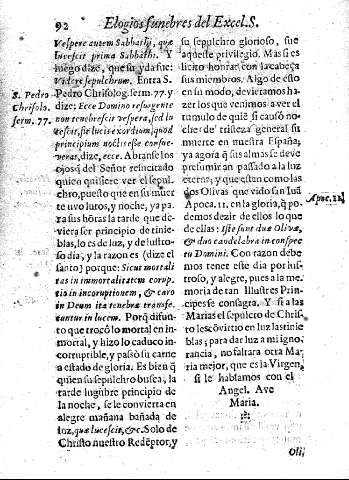 92 Elogios funebres del Excel. S.
Vespere autem Sabbathi, quæ
lucescit prima Sabbathi. Y
luego dize, que su yda fue:
Videre sepulchrum. Entra S.
S. Pedro
Chrisolo.
serm. 77.
Pedro Chrisolog. serm. 77. y
dize: Ecce Domino resurgente
non tenebrescit vespera, sed lu
cescit, fit lucis exordium, quod
principium noctis esse consue-
verat, dize, ecce. Abranse los
ojos del Señor resucitado
quien quisiere ver el sepul-
chro, puesto que en su muer
te uvo luros, y noche, ya pa-
ra sus hōras la tarde que de-
viera ser principio de tinie-
blas, lo es de luz, y de lustro-
so dia; y la razon es (dize el
santo) porque: Sicut mortali
tas in immortalitatem corup-
tio in incoruptionem, & caro
in Deum ita tenebræ transfe-
runtur in lucem. Porq̃ difun-
to que trocò lo mortal en in-
mortal, y hizo lo caduco in-
corruptible, y passò su carne
a estado de gloria. Es bien q̃
quien su sepulchro busca, la
tarde lugubre principio de
la noche, se le convierta en
alegre mañana bañada de
luz, quæ lucescit, &c. Solo de
Christo nuestro Redẽptor, y
su sepulchro glorioso, fue
aqueste privilegio. Mas si es
licito honrar con la cabeça
sus miembros. Algo de esso
en su modo, devieramos ha-
zer los que venimos a ver el
tumulo de quiẽ si causò no-
che de tristeza general su
muerte en nuestra España;
ya agora q̃ sus almas se deve
presumir an passado a la luz
eterna; y que estan como las
dos Olivas que vido san Iuã
Apoca. 11. en la gloria, q̃ po-
Apoc. 11.
demos dezir de ellos lo que
de ellas: Isti sunt duæ Olivæ,
& duo candelabra in conspec
tu Domini. Con razon debe
mos tener este dia por lus-
troso, y alegre, pues a la me-
moria de tan Illustres Prin-
cipes se consagra. Y si a las
Marias el sepulcro de Chris-
to les cōvirtio en luz las tinie
blas; para dar luz a mi igno-
rancia, no faltara otra Ma-
ria mejor, que es la Virgen,
si le hablamos con el
Angel. Ave
Maria.
Oli.